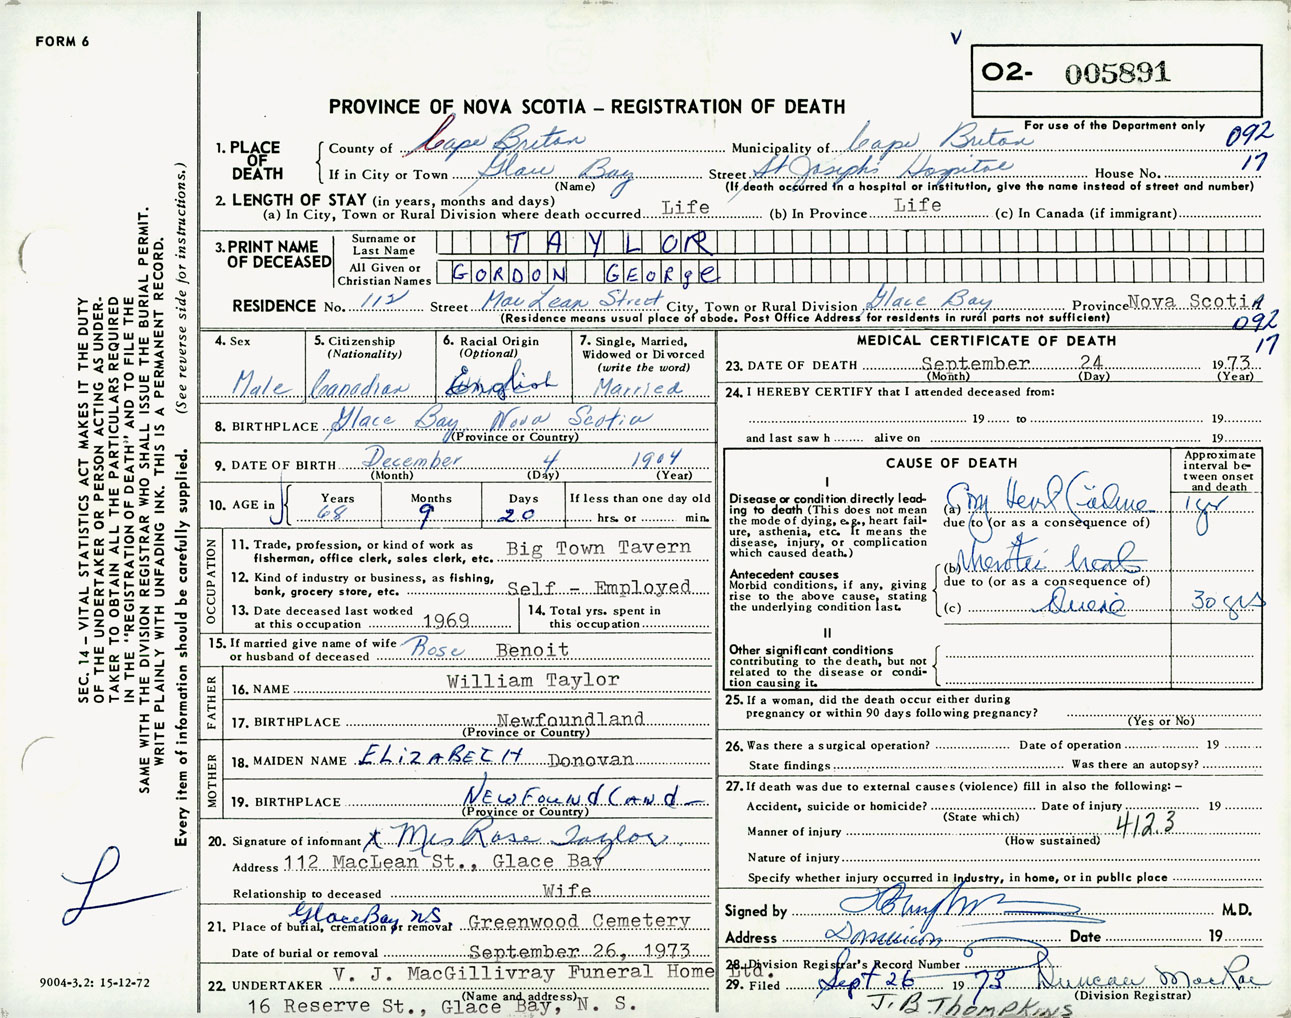 FORM 6
O2- 005891
PROVINCE OF NOVA SCOTIA – REGISTRATION OF DEATH
For use of the Department only
092
17
1. PLACE OF DEATH
County of Cape Breton Municipality of Cape Breton
If in City or Town Glace Bay Street St Joseph's Hospital House No.
(Name) (If death occurred in a hospital or institution, give the name instead of street and number)
2. LENGTH OF STAY (in years, months and days)
(a) In City, Town or Rural Division where death occurred Life (b) In Province Life (c) In Canada (if immigrant)
3. PRINT NAME OF DECEASED
Surname or Last Name TAYLOR
All Given or Christian Names GORDON GEORge
RESIDENCE No. 112 Street MacLean Street City, Town or Rural Division Glace Bay Province Nova Scotia
(Residence means usual place of abode. Post Office Address for residents in rural parts not sufficient)
092
17
4. Sex
Male
5. Citizenship (Nationality)
Canadian
6. Racial Origin (Optional)
English
7. Single, Married, Widowed or Divorced (write the word)
Married
8. BIRTHPLACE Glace Bay, Nova Scotia
(Province or Country)
9. DATE OF BIRTH December 4 1904
(Month) (Day) (Year)
10. AGE in
Years 68
Months 9
Days 20
If less than one day old
hrs. or min.
OCCUPATION
11. Trade, profession, or kind of work as fisherman, office clerk, sales clerk, etc. Big Town Tavern
12. Kind of industry or business, as fishing, bank, grocery store, etc. Self - Employed
13. Date deceased last worked at this occupation 1969
14. Total yrs. spent in this occupation
15. If married give name of wife or husband of deceased Rose Benoit
FATHER
16. NAME William Taylor
17. BIRTHPLACE Newfoundland
(Province or Country)
MOTHER
18. MAIDEN NAME ELIZABETH Donovan
19. BIRTHPLACE NEWFOUNdLANd –
(Province or Country)
20. Signature of informant x Mrs Rose Taylor
Address 112 MacLean St., Glace Bay
Relationship to deceased Wife
Glace Bay N.S,
21. Place of burial, cremation or removal Greenwood Cemetery
Date of burial or removal September 26, 1973
V. J. MacGillivray Funeral Home Ltd.
22. UNDERTAKER
(Name and address)
16 Reserve St., Glace Bay, N. S.
MEDICAL CERTIFICATE OF DEATH
23. DATE OF DEATH September 24 1973
(Month) (Day) (Year)
24. I HEREBY CERTIFY that I attended deceased from:
19 to 19
and last saw h alive on 19
CAUSE OF DEATH
Approximate interval between onset and death
I
Disease or condition directly leading to death (This does not mean the mode of dying, e.g., heart failure, asthenia, etc. It means the disease, injury, or complication which caused death.)
(a)
1 yr
due to (or as a consequence of)
Antecedent causes
Morbid conditions, if any, giving rise to the above cause, stating the underlying condition last.
(b)
due to (or as a consequence of)
(c)
30 yrs
II
Other significant conditions contributing to the death, but not related to the disease or condition causing it.
25. If a woman, did the death occur either during pregnancy or within 90 days following pregnancy?
(Yes or No)
26. Was there a surgical operation? Date of operation 19
State findings Was there an autopsy?
27. If death was due to external causes (violence) fill in also the following: –
Accident, suicide or homicide? Date of injury 19
(State which)
Manner of injury 412.3
(How sustained)
Nature of injury
Specify whether injury occurred in industry, in home, or in public place
Signed by M.D.
Address Dominion Date 19
28. Division Registrar's Record Number
29. Filed Sept 26 1973 Duncan MacRae
(Division Registrar)
J. B. THOMPKINS
SEC. 14 – VITAL STATISTICS ACT MAKES IT THE DUTY
OF THE UNDERTAKER OR PERSON ACTING AS UNDER-
TAKER TO OBTAIN ALL THE PARTICULARS REQUIRED
IN THE "REGISTRATION OF DEATH" AND TO FILE THE
SAME WITH THE DIVISION REGISTRAR WHO SHALL ISSUE THE BURIAL PERMIT.
WRITE PLAINLY WITH UNFADING INK. THIS IS A PERMANENT RECORD.
Every item of information should be carefully supplied. (See reverse side for instructions.)
L
9004-3.2: 15-12-72